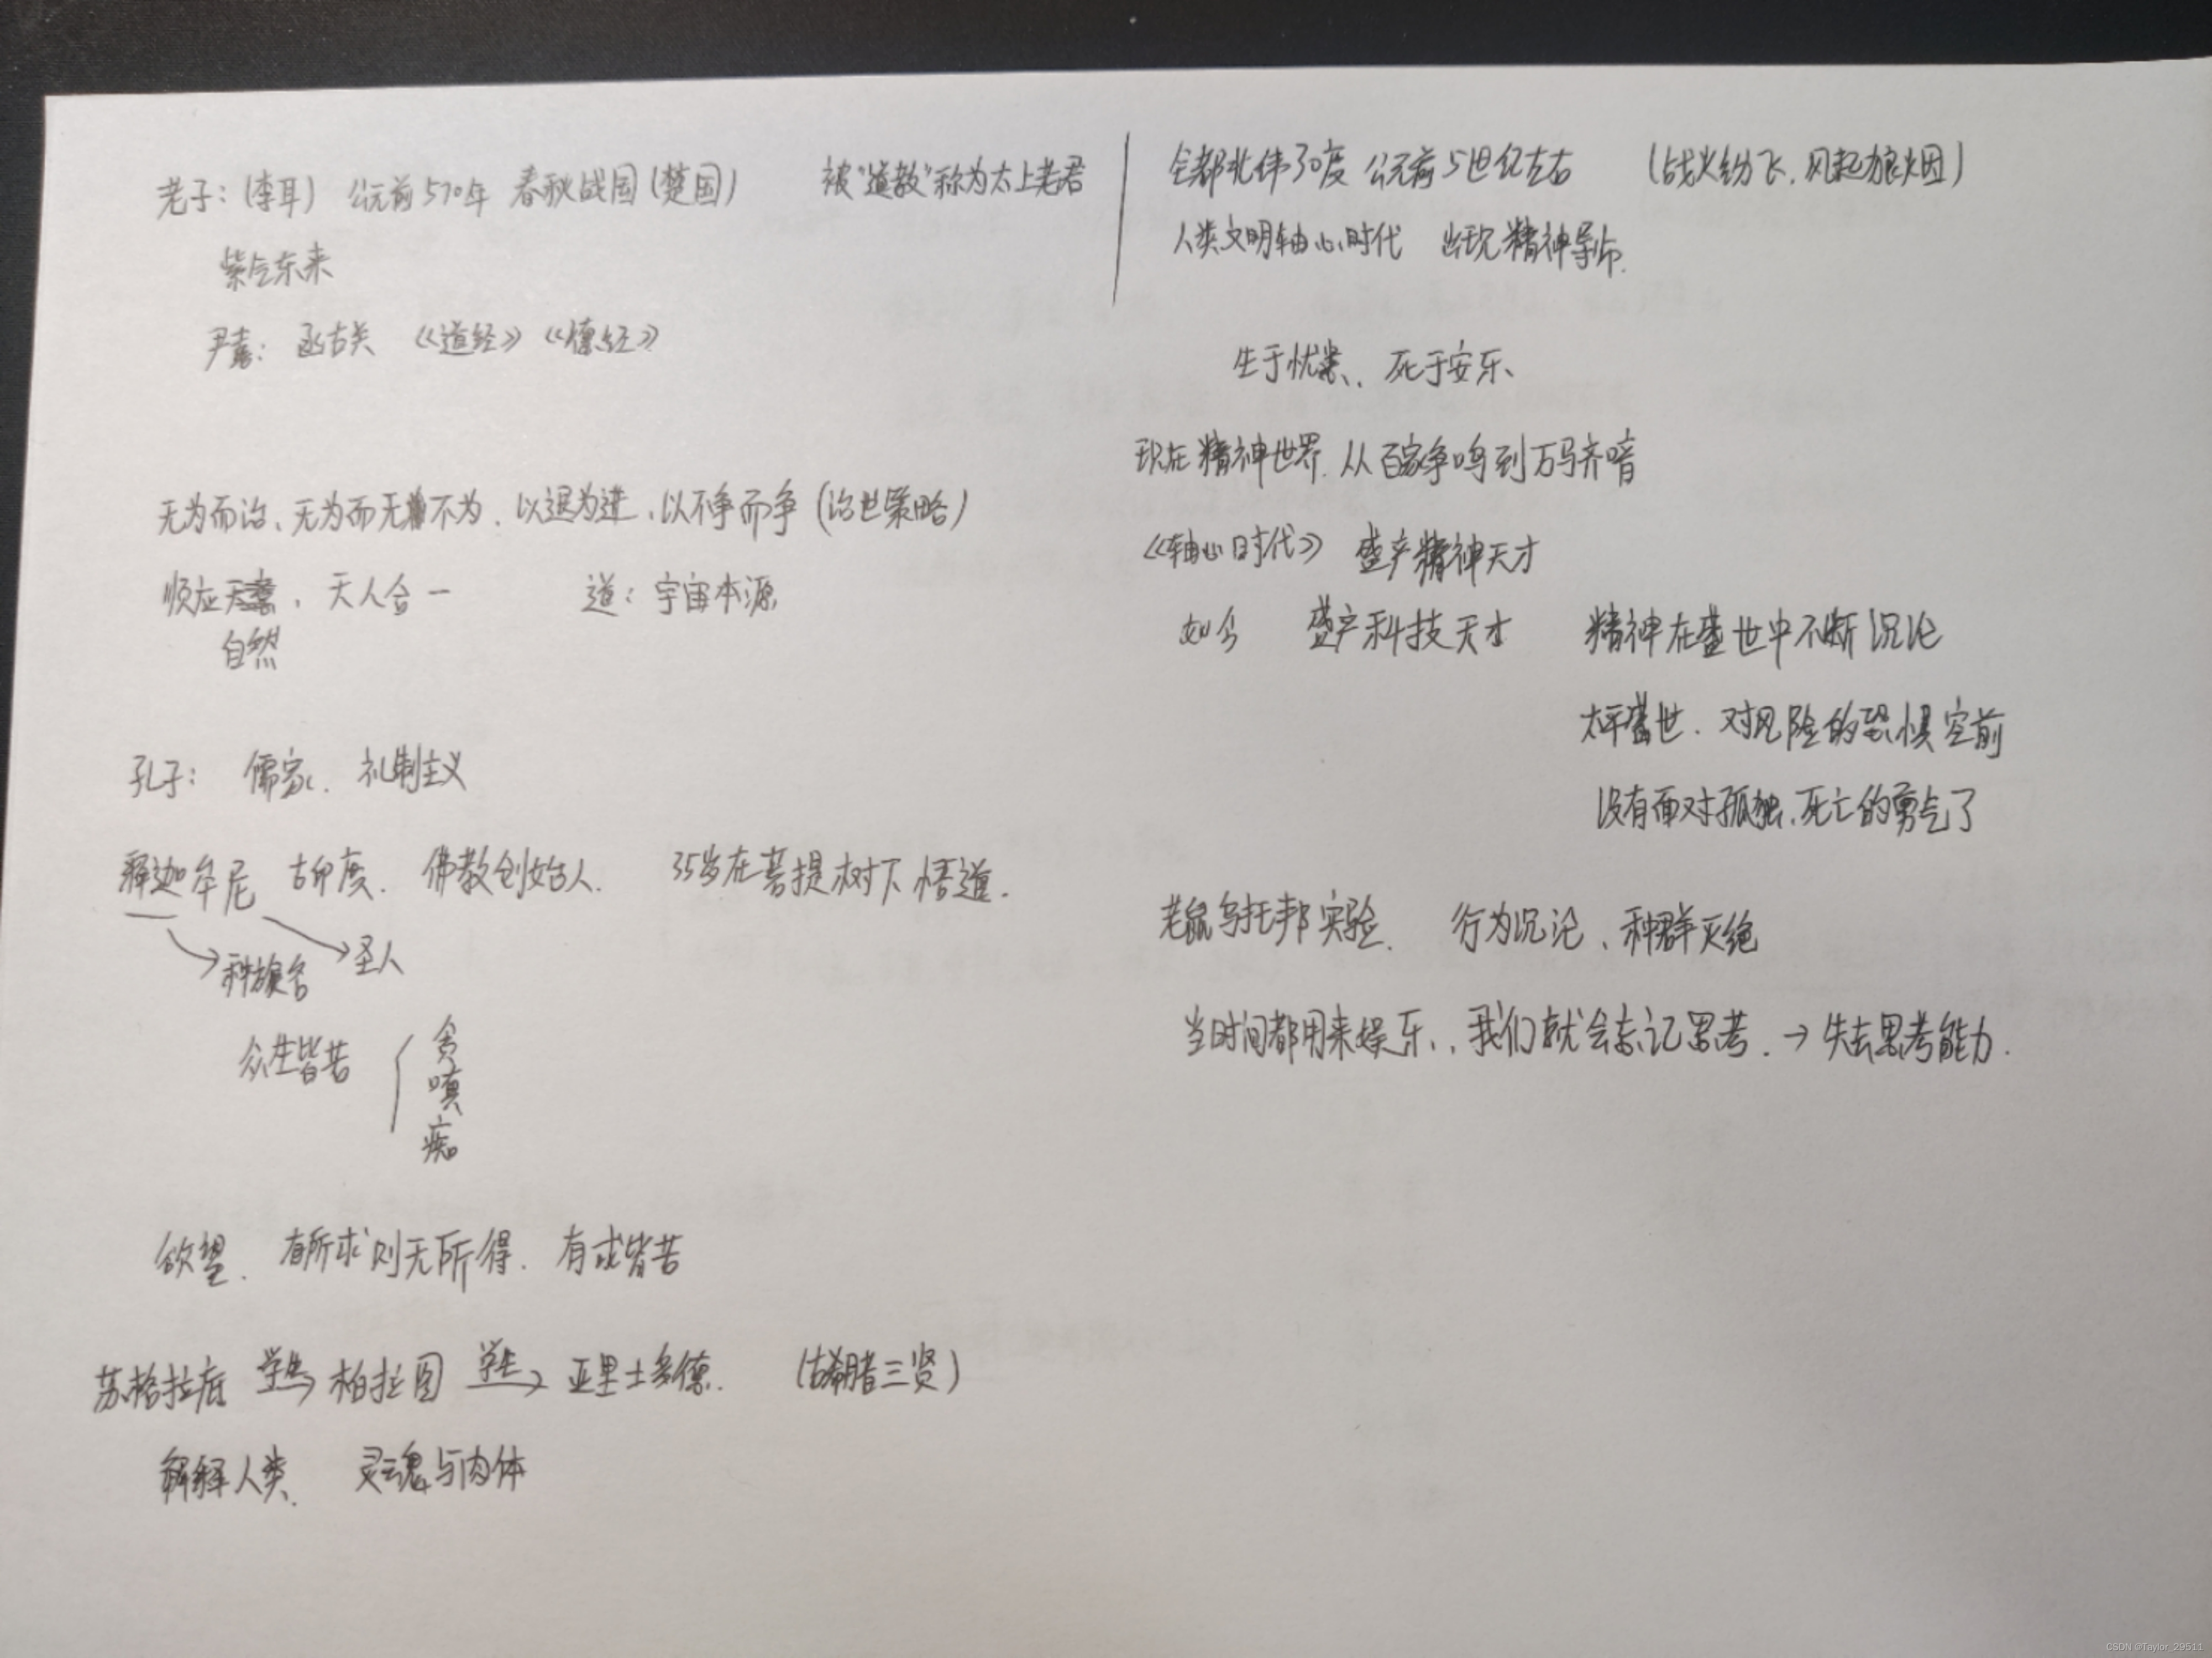 老子：(李耳) 公元前570年 春秋战国(楚国) 被"道教"称为太上老君
紫气东来
尹喜：函古关 《道经》《德经》
无为而治、无为而无不为、以退为进、以不争而争(治世策略)
顺应 、天人合一 道：宇宙本源
自然
孔子： 儒家、礼制主义
释迦牟尼 古印度、佛教创始人. 35岁在菩提树下悟道.
种族名 圣人
众生皆苦
贪
嗔
痴
欲望、有所求则无所得. 有求皆苦
苏格拉底 学生→ 柏拉图 学生→ 亚里士多德. (古希腊三贤)
解释人类、 灵魂与肉体
全都北纬30度 公元前5世纪左右 (战火纷飞,风起狼烟)
人类文明轴心时代 出现精神导师.
生于忧患、死于安乐、
现在精神世界. 从百家争鸣到万马齐喑
《轴心时代》 盛产精神天才
如今 盛产科技天才 精神在盛世中不断沉沦
太平盛世. 对风险的恐惧空前
没有面对孤独、死亡的勇气了
老鼠乌托邦实验. 行为沉沦、种群灭绝
当时间都用来娱乐,我们就会忘记思考. → 失去思考能力.
CSDN @Taylor_29511